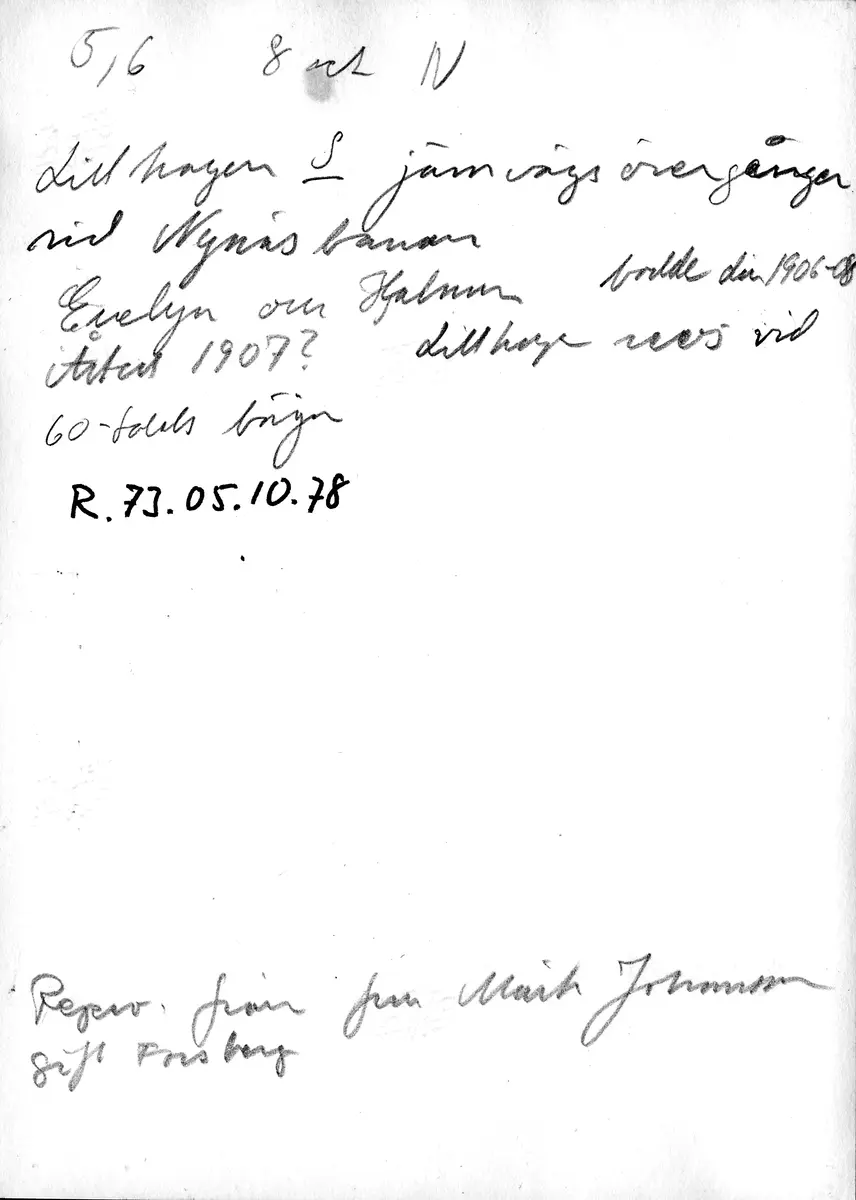 5,6 8 och N
Lillhagen S järnvägsövergången
vid Nynäsbanan
Evelyn och Hjalmar bodde där 1906-08
Året 1907? Lillhagen revs vid
60-talets början
R. 73.05.10.78
Repro. från fru Märta Johansson
gift Forsberg